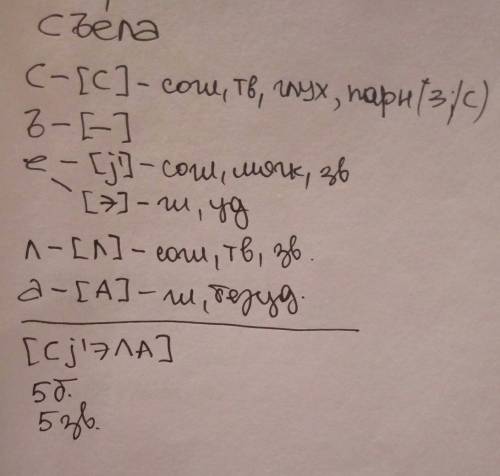 съе́ла
С-[С]-согл, тв, глух, парн (з/с)
ъ-[-]
е-[j']-согл, мягк, зв
[э]-гл, уд
л-[л]-согл, тв, зв.
а-[А]-гл, безуд.
[Сj'эЛА]
5б.
5зв.